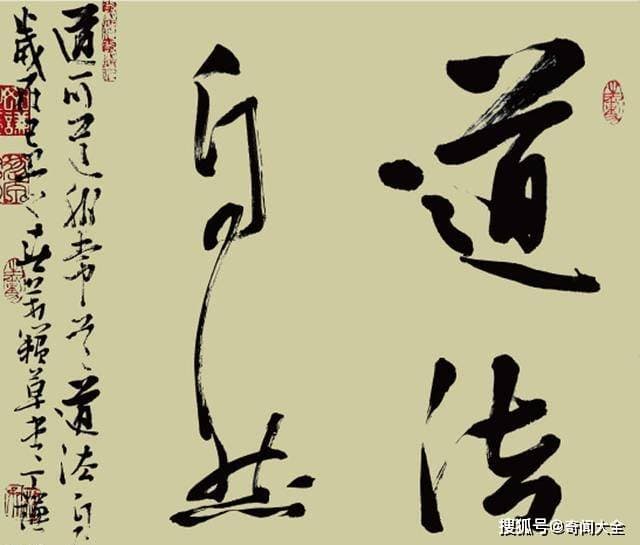 道法
自然
道可道非常道道法自
歲 草書丁謙
搜狐号@奇闻大全